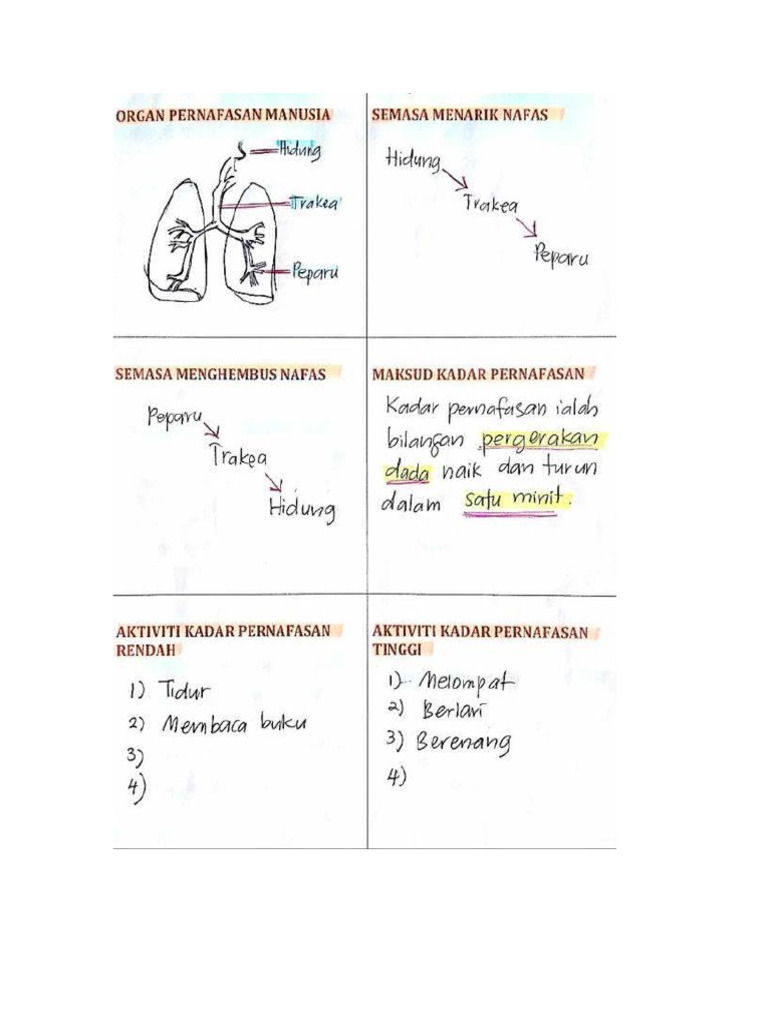 ORGAN PERNAFASAN MANUSIA
Hidung
Trakea
Peparu
SEMASA MENARIK NAFAS
Hidung
Trakea
Peparu
SEMASA MENGHEMBUS NAFAS
Peparu
Trakea
Hidung
MAKSUD KADAR PERNAFASAN
Kadar pernafasan ialah
bilangan pergerakan
dada naik dan turun
dalam satu minit.
AKTIVITI KADAR PERNAFASAN
RENDAH
1) Tidur
2) Membaca buku
3)
4)
AKTIVITI KADAR PERNAFASAN
TINGGI
1) Melompat
2) Berlari
3) Berenang
4)